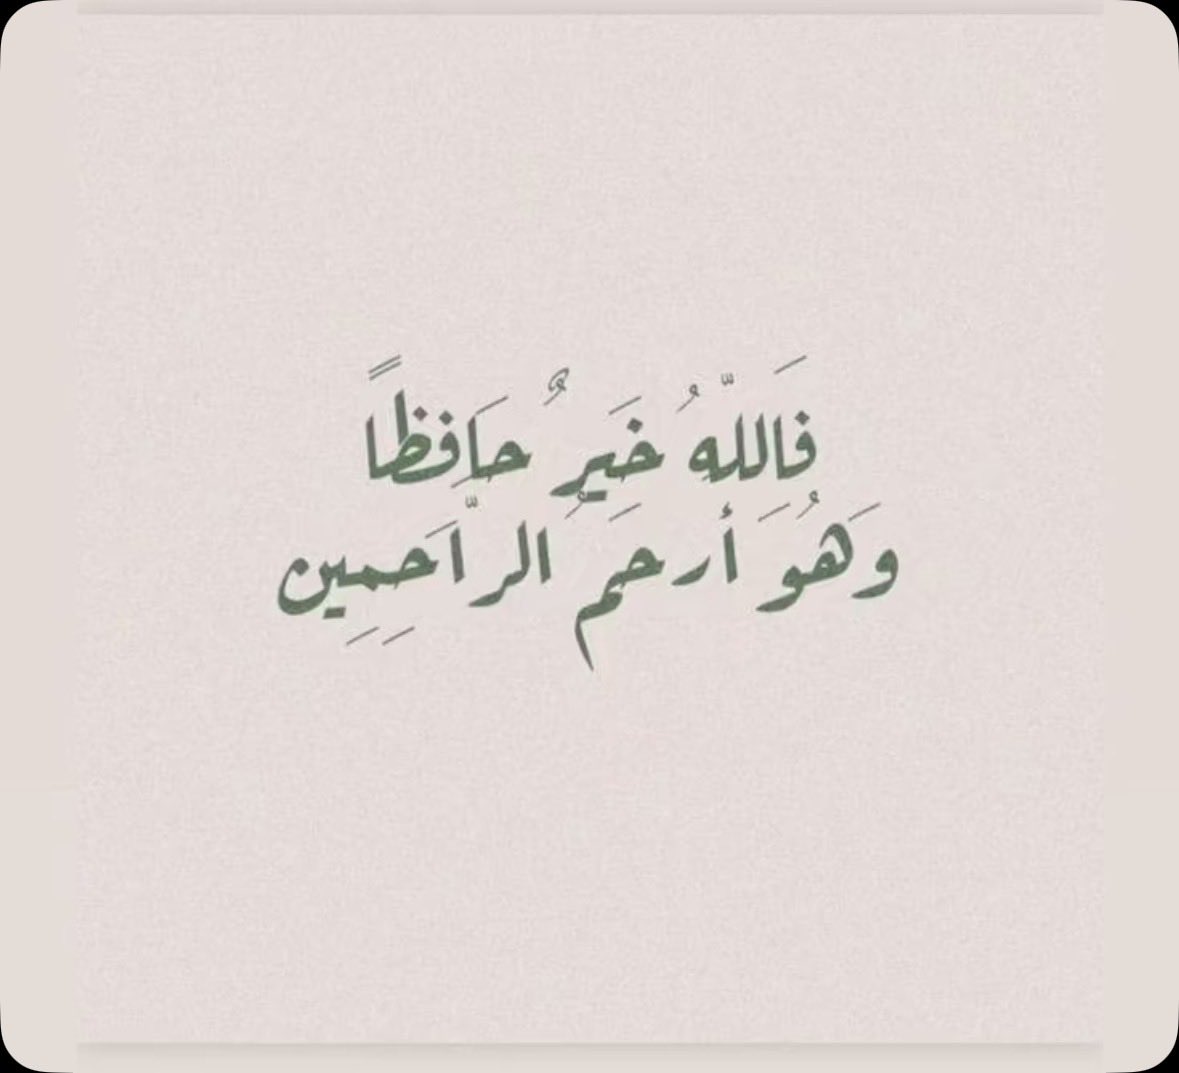 فَاللّهُ خَيرٌ حَافِظاً
وَهُوَ أَرحَمُ الرَّاحِمِين